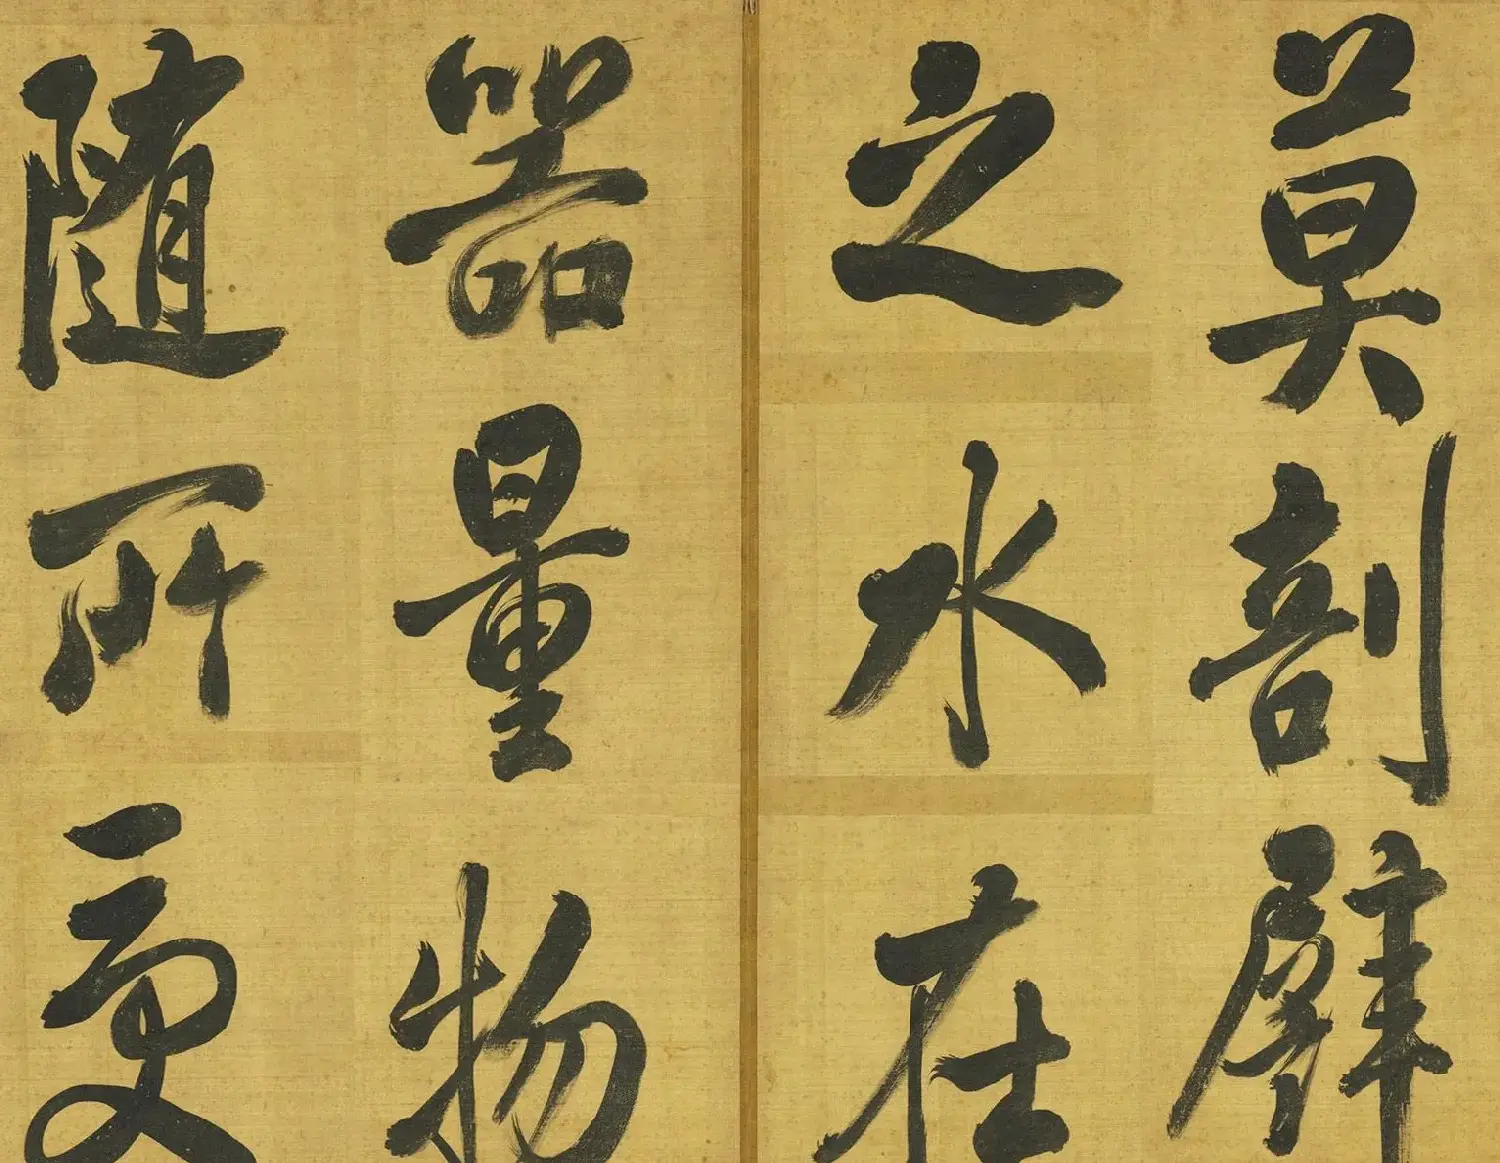 莫剖譬
之水在
器量物
随所受